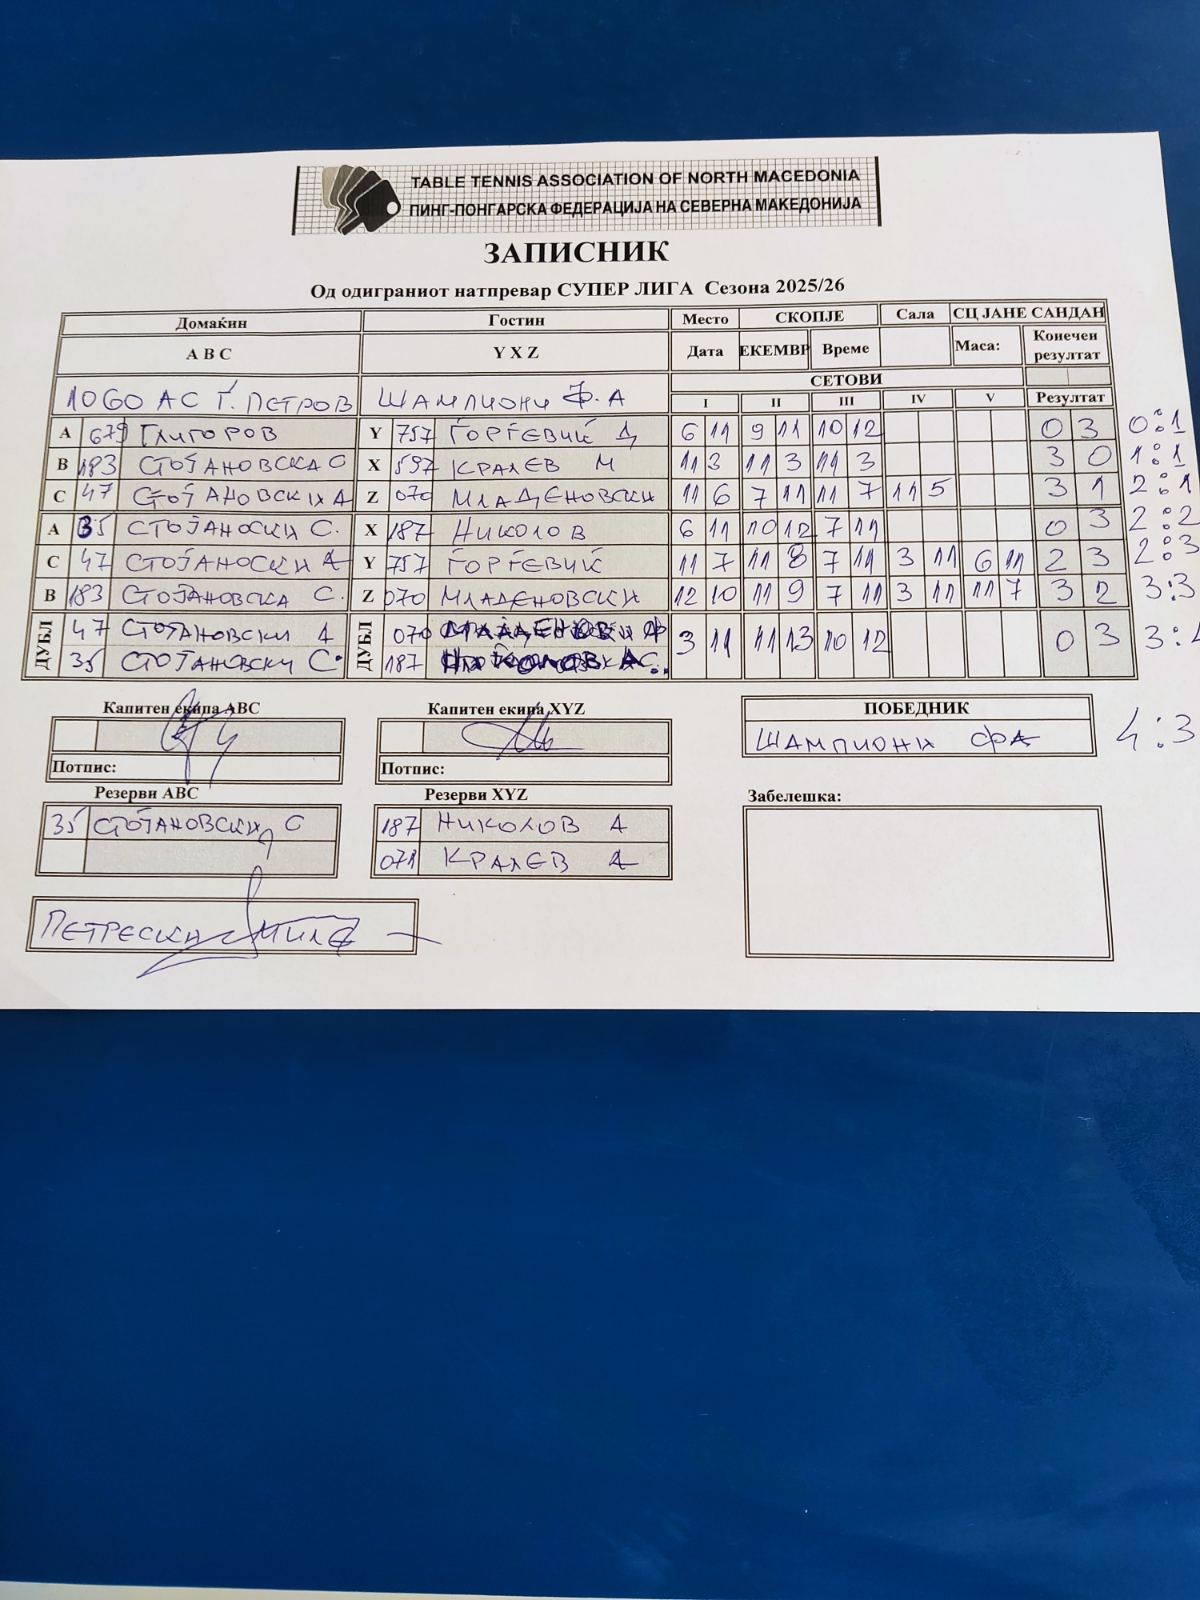 TABLE TENNIS ASSOCIATION OF NORTH MACEDONIA
ПИНГ-ПОНГАРСКА ФЕДЕРАЦИЈА НА СЕВЕРНА МАКЕДОНИЈА
ЗАПИСНИК
Од одиграниот натпревар СУПЕР ЛИГА Сезона 2025/26
Домаќин Гостин Место СКОПЈЕ Сала СЦ ЈАНЕ САНДАН
A B C Y X Z Дата ЕКЕМВР Време Маса: Конечен резултат
1060 АС Ѓ. ПЕТРОВ ШАМПИОНИ Ф.А СЕТОВИ
I II III IV V Резултат
A 679 ГЛИГОРОВ Y 757 ЃОРЃЕВИЌ Д 6 11 9 11 10 12 0 3 0:1
B 183 СТОЈАНОВСКА С X 597 КРАЛЕВ М 11 3 11 3 11 3 3 0 1:1
C 47 СТОЈАНОВСКИ А Z 070 МЛАДЕНОВСКИ 11 6 7 11 11 7 11 5 3 1 2:1
A 35 СТОЈАНОСКИ С. X 187 НИКОЛОВ 6 11 10 12 7 11 0 3 2:2
C 47 СТОЈАНОСКИ А Y 757 ЃОРЃЕВИЌ 11 7 11 8 7 11 3 11 6 11 2 3 2:3
B 183 СТОЈАНОВСКА С. Z 070 МЛАДЕНОВСКИ 12 10 11 9 7 11 3 11 11 7 3 2 3:3
ДУБЛ 47 СТОЈАНОВСКИ А ДУБЛ 070 МЛАДЕНОВСКИ Ф 3 11 11 13 10 12 0 3 3:4
35 СТОЈАНОВСКИ С. 187 НИКОЛОВ А
Капитен екипа ABC Капитен екипа XYZ ПОБЕДНИК
ШАМПИОНИ ФА 4:3
Потпис: Потпис:
Резерви ABC Резерви XYZ Забелешка:
35 СТОЈАНОВСКИ С 187 НИКОЛОВ А
071 КРАЛЕВ А
ПЕТРЕСКИ МИЛЕ